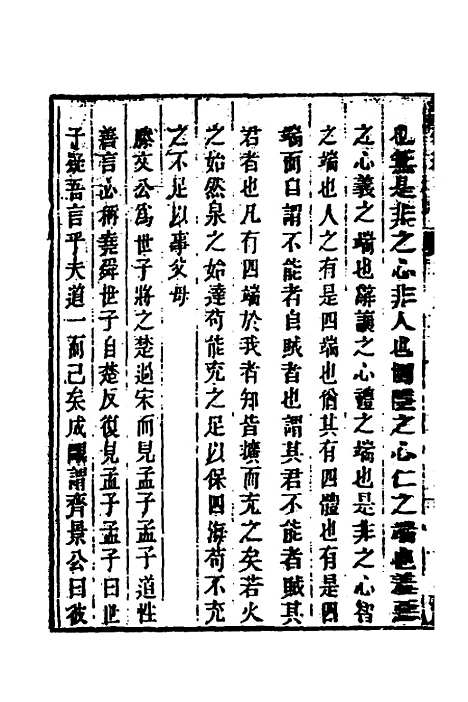 也無是非之心非人也惻隱之心仁之端也羞惡
之心義之端也辭讓之心禮之端也是非之心智
之端也人之有是四端也猶其有四體也有是四
端而自謂不能者自賊者也謂其君不能者賊其
君者也凡有四端於我者知皆擴而充之矣若火
之始然泉之始達苟能充之足以保四海苟不充
之不足以事父母
滕文公為世子將之楚過宋而見孟子孟子道性
善言必稱堯舜世子自楚反復見孟子孟子曰世
子疑吾言乎夫道一而已矣成覵謂齊景公曰彼